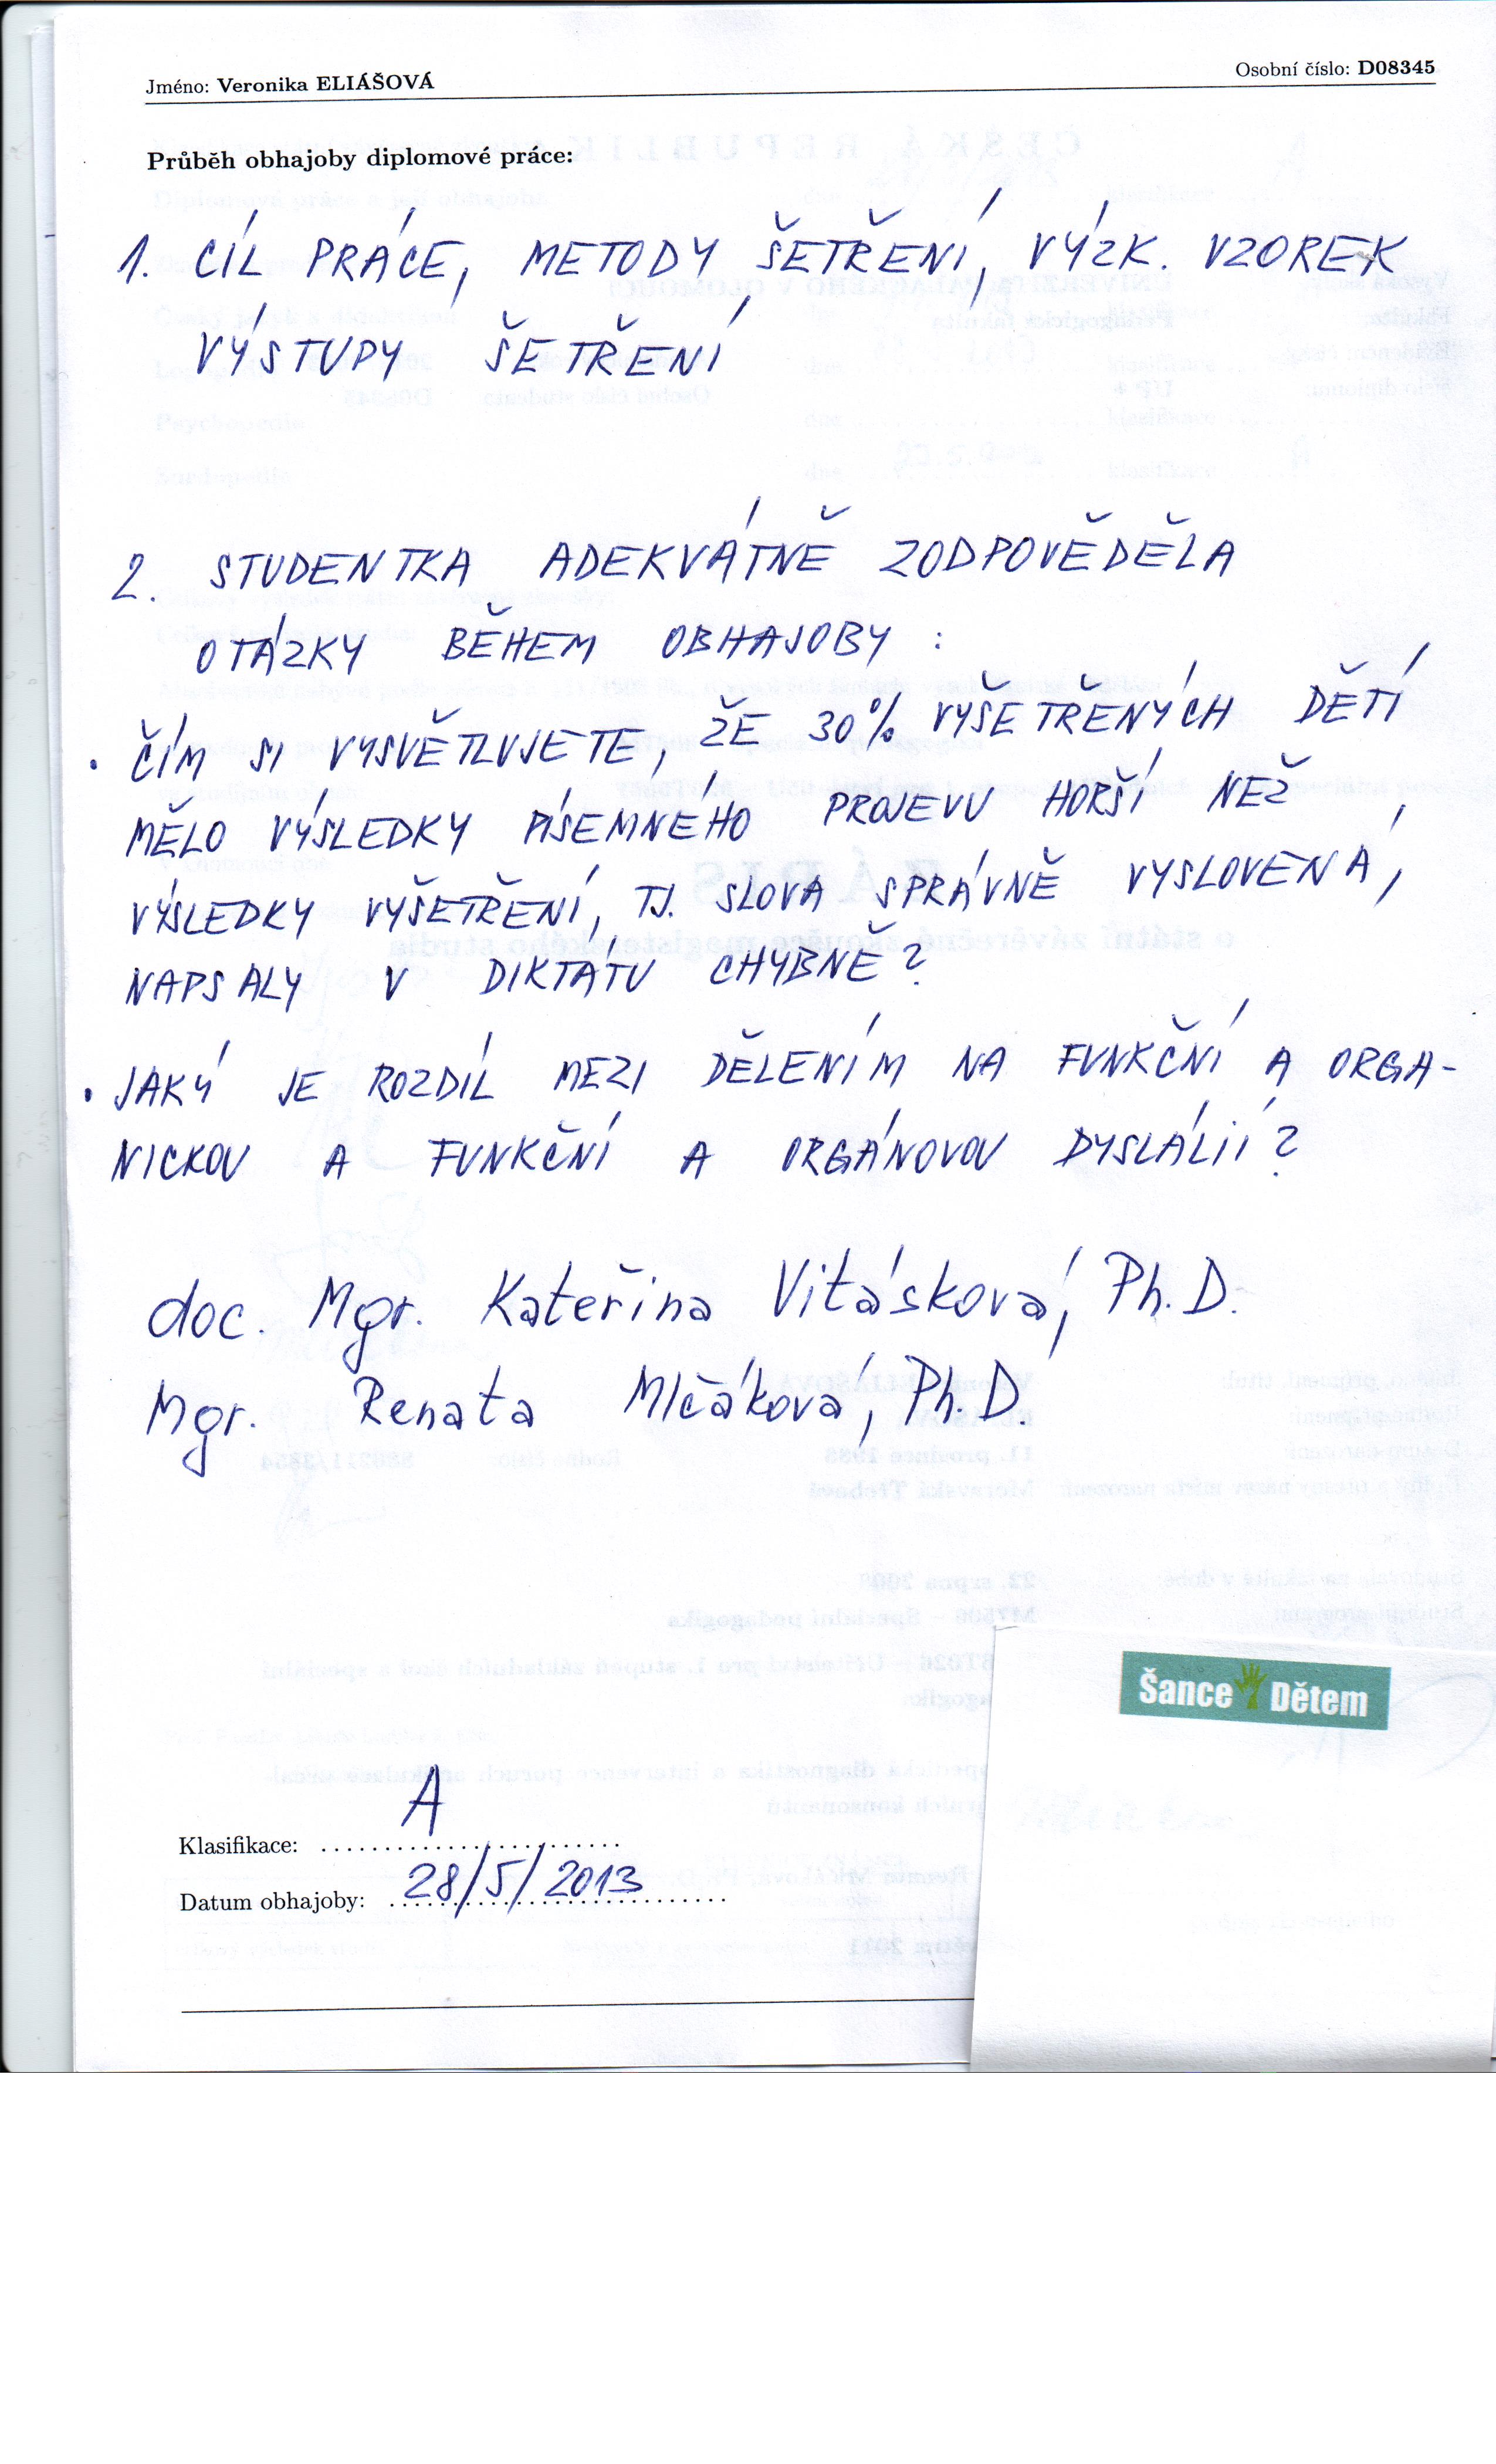 Jméno: Veronika ELIÁŠOVÁ
Osobní číslo: D08345
Průběh obhajoby diplomové práce:
1. CÍL PRÁCE, METODY ŠETŘENÍ, VÝZK. VZOREK
VÝSTUPY ŠETŘENÍ
2. STUDENTKA ADEKVÁTNĚ ZODPOVĚDĚLA
OTÁZKY BĚHEM OBHAJOBY :
• ČÍM SI VYSVĚTLUJETE, ŽE 30% VYŠETŘENÝCH DĚTÍ
MĚLO VÝSLEDKY PÍSEMNÉHO PROJEVU HORŠÍ NEŽ
VÝSLEDKY VYŠETŘENÍ, TJ. SLOVA SPRÁVNĚ VYSLOVENÁ,
NAPSALY V DIKTÁTU CHYBNĚ?
• JAKÝ JE ROZDÍL MEZI DĚLENÍM NA FUNKČNÍ A ORGA-
NICKOU A FUNKČNÍ A ORGÁNOVOU DYSLÁLII?
doc. Mgr. Kateřina Vitásková, Ph.D.
Mgr. Renata Mlčáková, Ph.D.
Šance Dětem
Klasifikace: A
Datum obhajoby: 28/5/2013